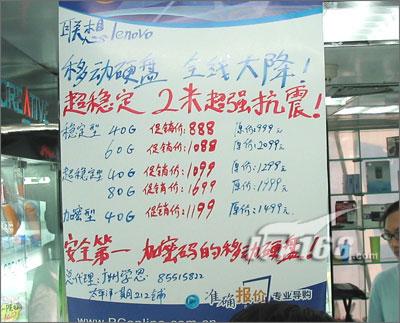 联想 lenovo
移动硬盘 全线大降!
超稳定 2米超强抗震!
稳定型 40G 促销价:888 原价:999元
60G 促销价:1088 原价:2099元
超稳定型 40G 促销价:1099 原价:1299元
80G 促销价:1699 原价:1799元
加密型 40G 促销价:1199 原价:1499元
安全第一 加密码的移动硬盘!
总代理:广州学思: 85515822
太平洋一期212会铺
准确报价 专业导购
www.PConline.com.cn
CREATIVE
IT168.com